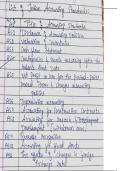 List of Indian Accounting Standards
Title of Accounting Standards
AS1 Disclosure of Accounting Policies
AS2 Valuation of Inventories
AS3 Cash flow Statement
AS4 Contingencies & events occurring after the balance sheet date
AS5 Net Profit or loss for the period, prior period items & changes accounting policies
AS6 Depreciation accounting
Accounting for Construction Contracts
Accounting for Research & Development
AS9 Revenue Recognition
AS10 Accounting for fixed Assets
AS11 The effects of changes in foreign exchange rates